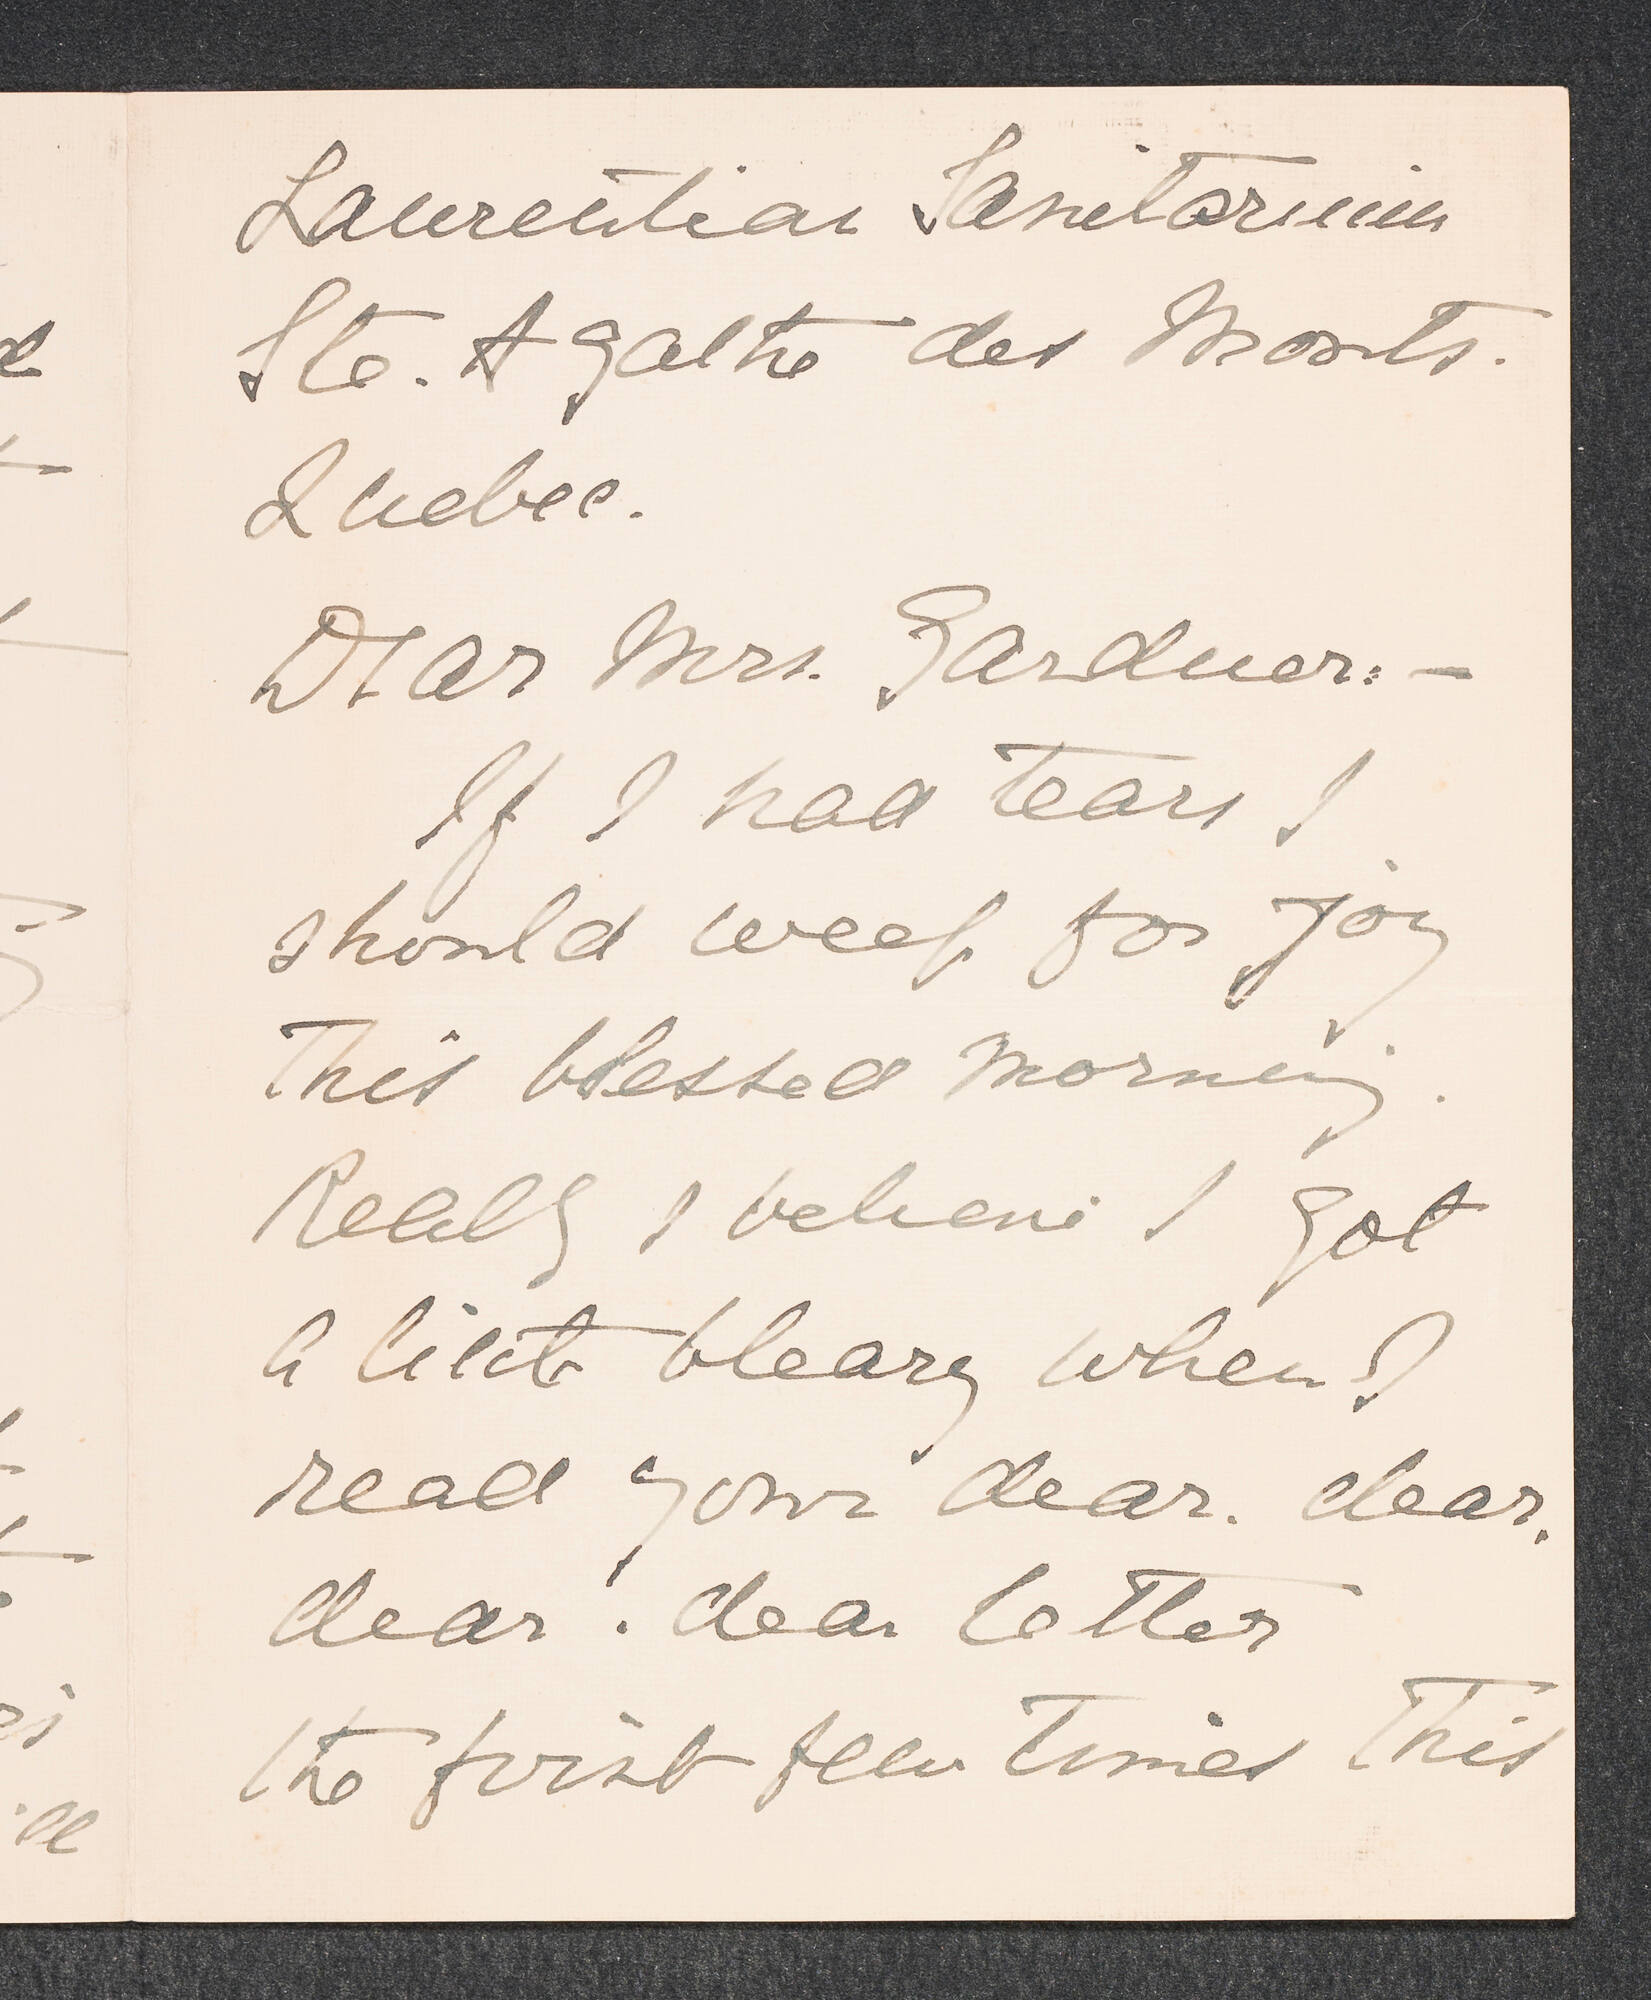 Laurentian Sanitarium
Ste. Agathe des Monts.
Quebec.
Dear Mrs. Gardner: —
If I had tears I
should weep for joy
this blessed morning.
Really I believe I got
a little bleary when I
read your dear. dear.
dear. dear letter
the first few times this